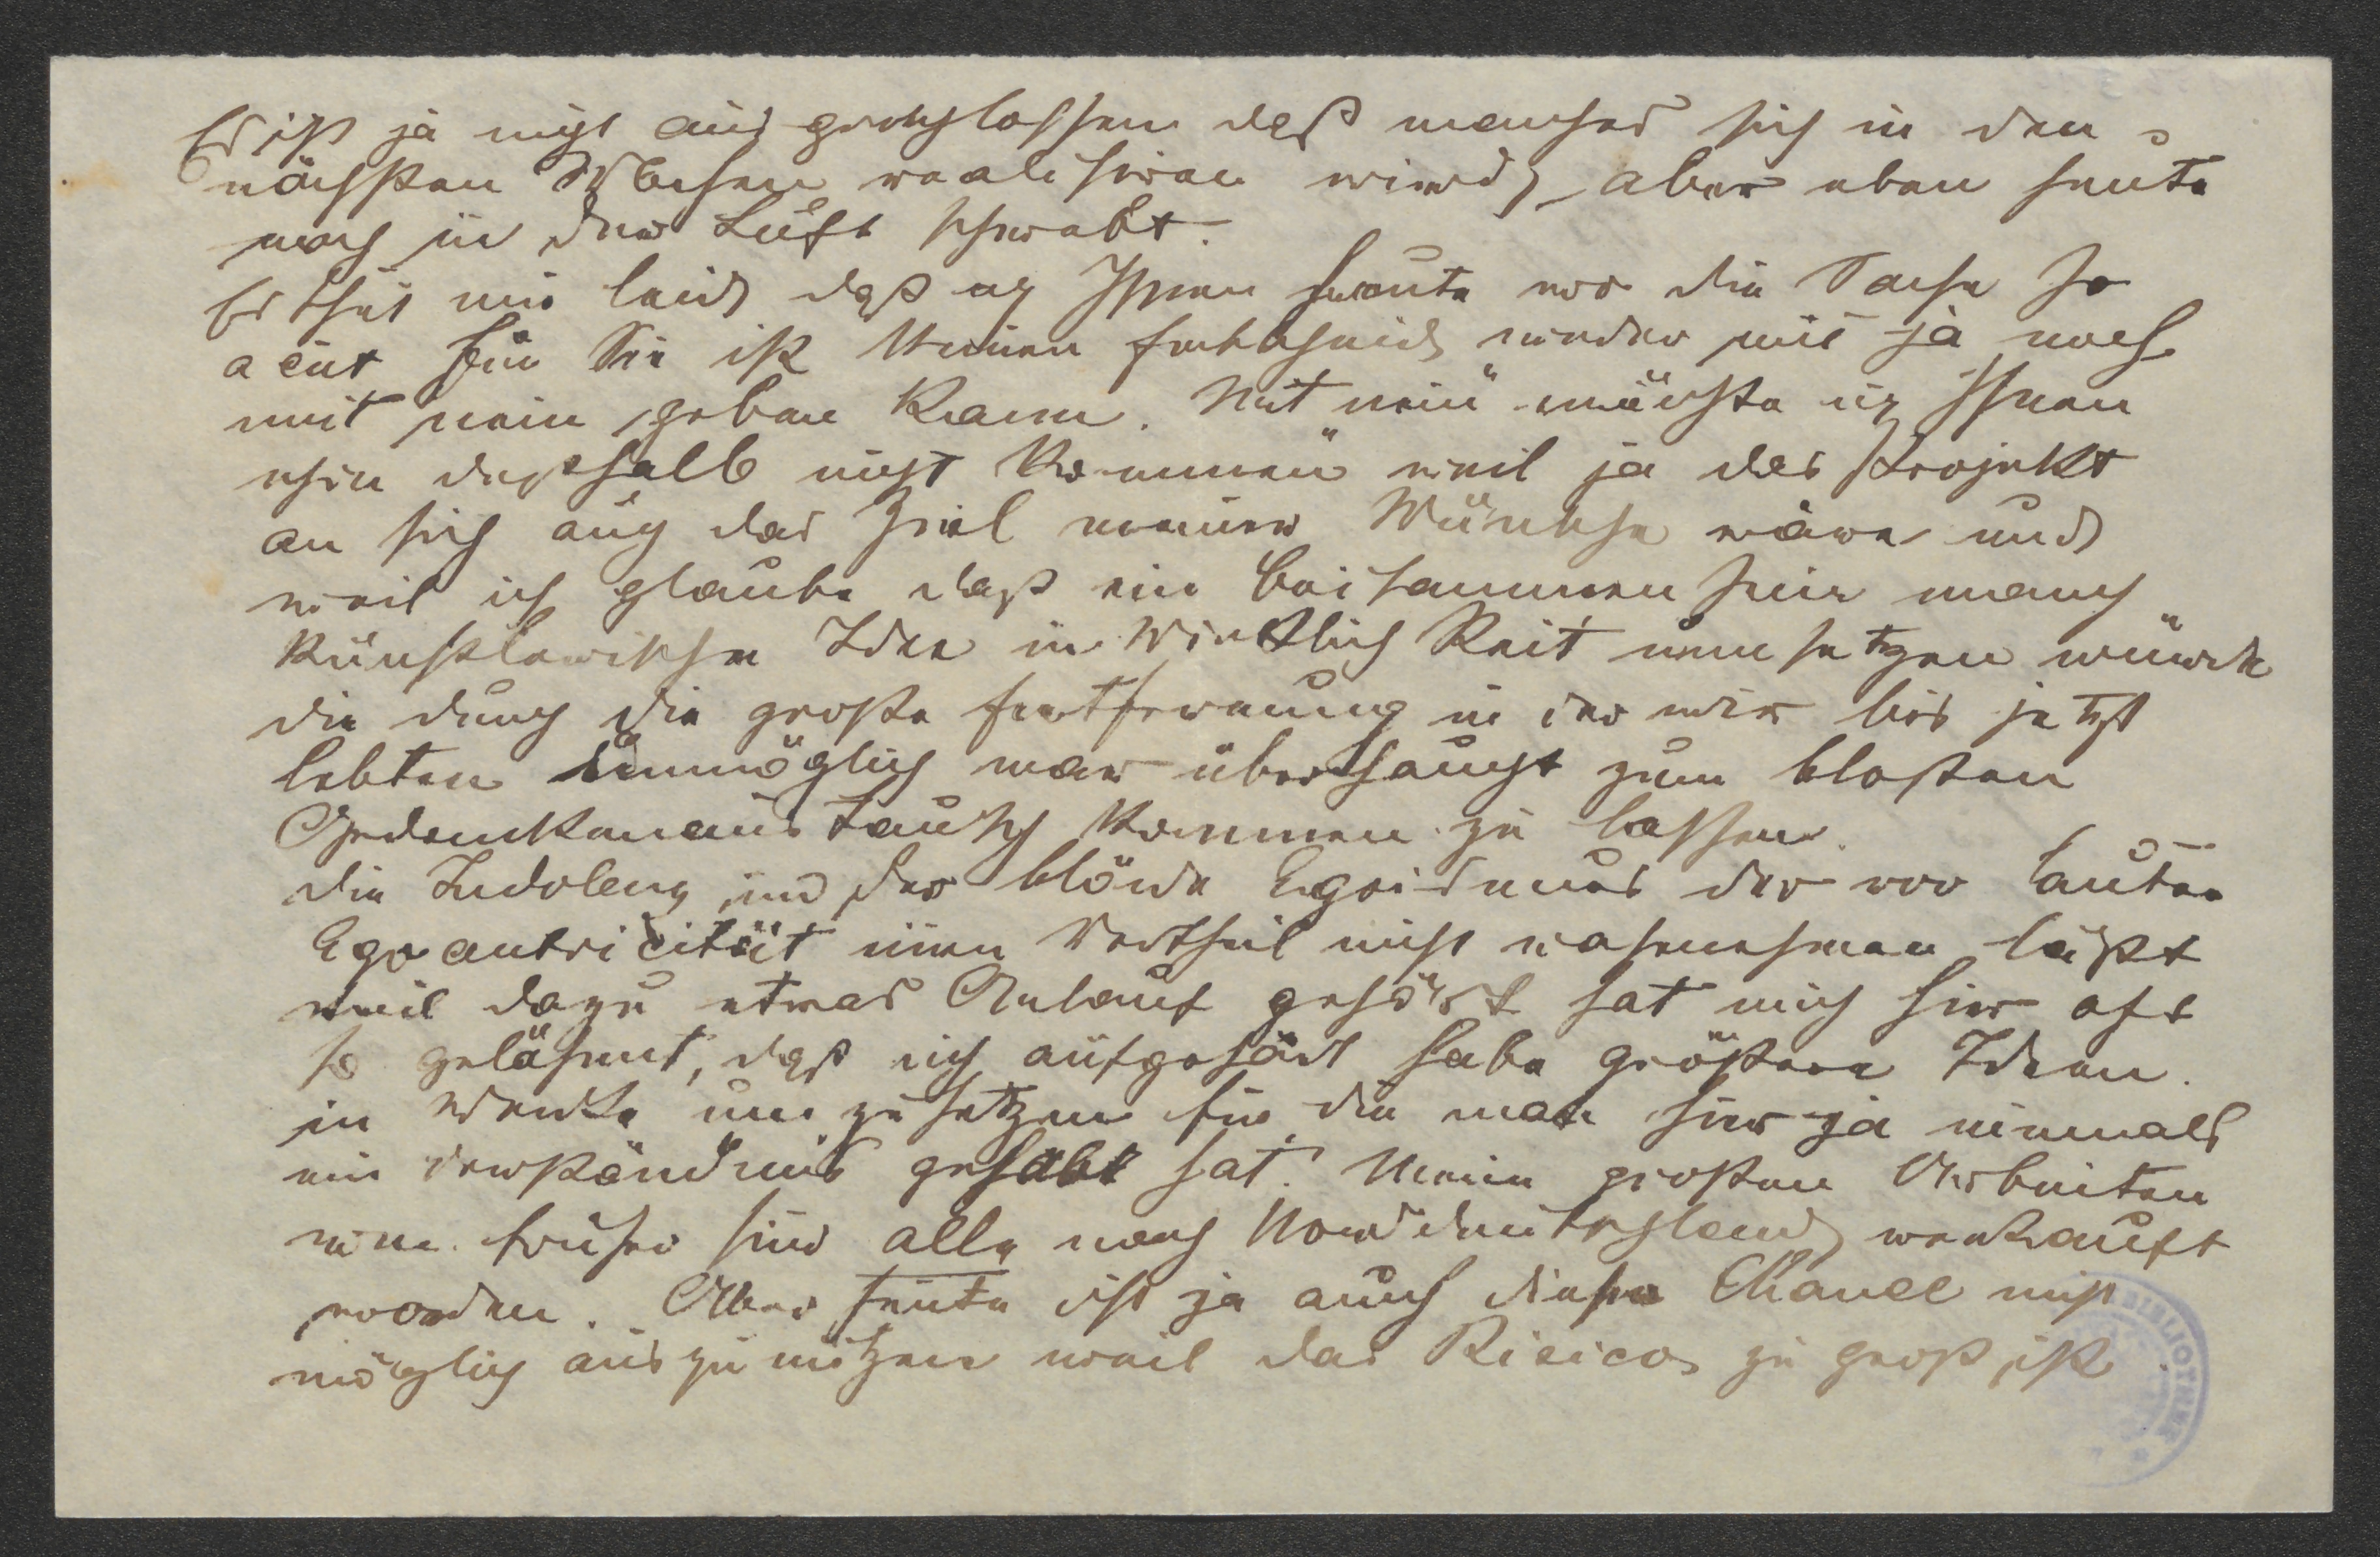 Es ist ja nicht ausgeschlossen daß manches sich in den
nächsten Wochen realisiren wird, aber eben heute
noch in der Luft schwebt.
Es thut mir leid daß ich Ihnen heute wo die Sache so
acut für Sie ist keinen Entscheid weder mit ja noch
mit nein geben kann. Mit "nein" möchte ich Ihnen
schon deßhalb nicht "kommen" weil ja das Projekt
an sich auch das Ziel meiner Wünsche wäre und
weil ich glaube daß ein Beisammensein manch
künstlerische Idee in Wirklichkeit umsetzen würde
die durch die große Entfernung in der wir bis jetzt
lebten unmöglich war überhaupt zum bloßen
Gedankenaustausch kommen zu lassen.
Die Indolenz und der blöde Egoismus der vor lauter
Egocentricität einen Vortheil nicht wahrnehmen läßt
weil dazu etwas Anlauf gehört hat mich hier oft
so gelähmt, daß ich aufgehört habe größere Ideen
in Werke umzusetzen für die man hier ja niemals
ein Verständnis gehabt hat. Meine großen Arbeiten
von früher sind alle nach Norddeutschland verkauft
worden. Aber heute ist ja auch dieser Chanel nicht
möglich auszunützen weil das Risico zu groß ist.
BIBLIOTHEK